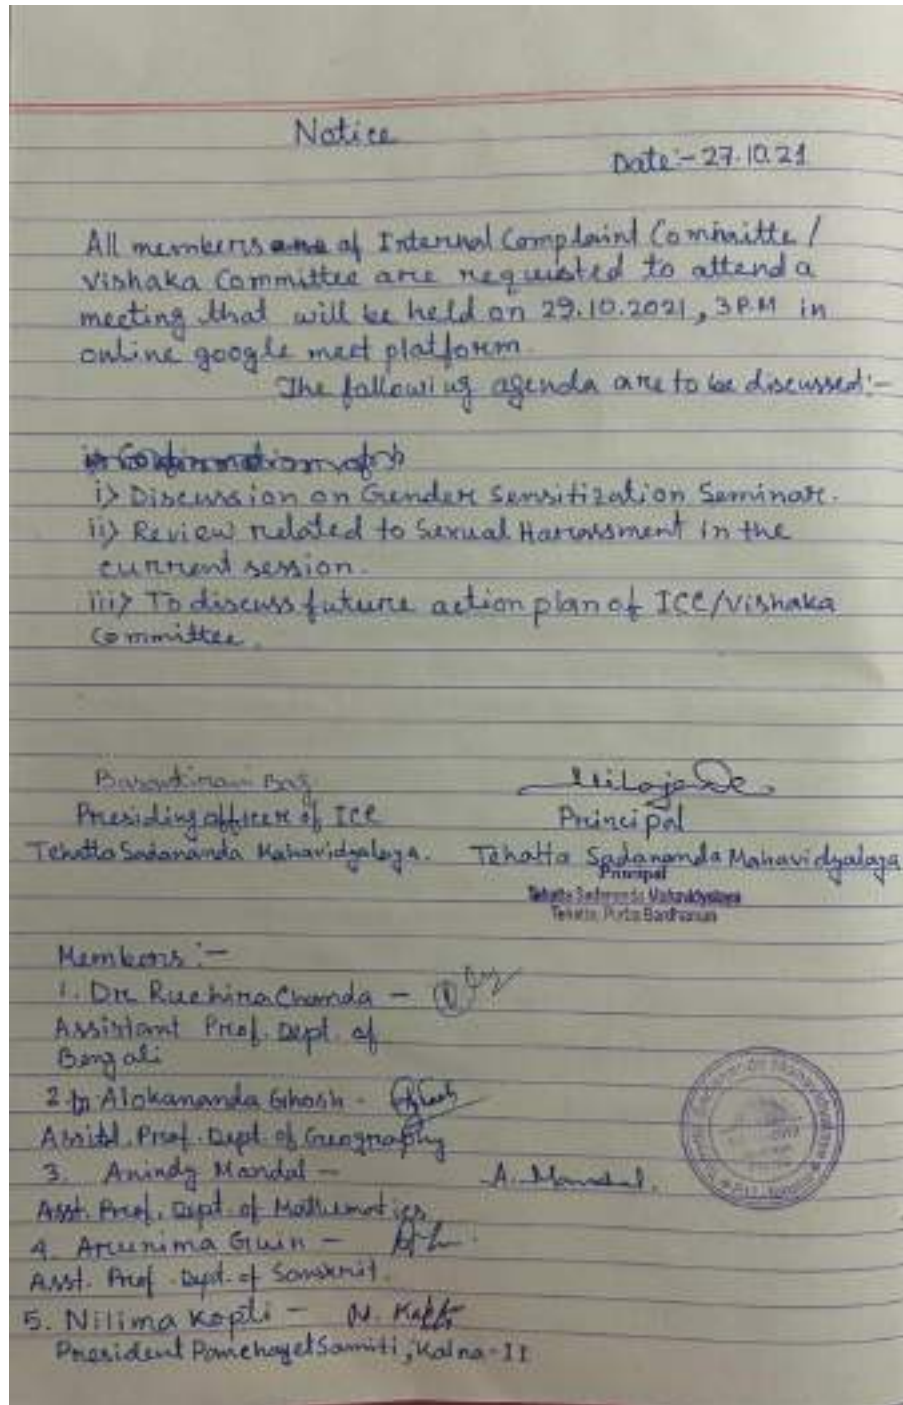 Notice
Date:- 27.10.21
All members of Internal Complaint Committe /
Vishaka Committee are requested to attend a
meeting that will be held on 29.10.2021, 3P.M in
online google meet platform.
The following agenda are to be discussed:-
i> Discussion on Gender Sensitization Seminar.
ii> Review related to Sexual Harrassment in the
current session.
iii> To discuss future action plan of ICC/Vishaka
Committee.
Basantirani Bag
Presiding officer of ICC
Principal
Tehatta Sadananda Mahavidyalaya.
Tehatta Sadananda Mahavidyalaya
Principal
Tehatta Sadananda Mahavidyalaya
Tehatta, Purba Bardhaman
Members:-
1. Dr. Ruchira Chanda -
Assistant Prof. Dept. of
Bengali
2. Alokananda Ghosh - Ghosh
Assitt. Prof. Dept. of Geography
3. Anindy Mandal - A. Mandal.
Asst. Prof. Dept. of Mathematics
4. Arunima Guin -
Asst. Prof. Dept. of Sanskrit.
5. Nilima Kopti - N. Kopti
President Panchayet Samiti, Kalna-II